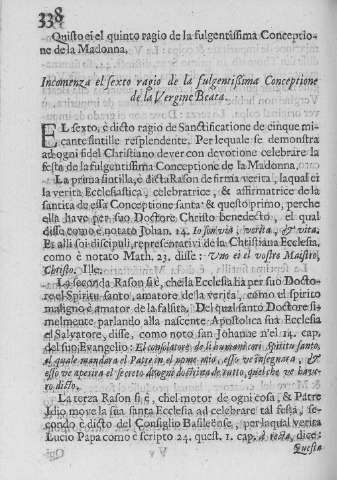 338
Questo ei el quinto ragio de la fulgentissima Conceptio-
ne de la Madonna.
Incomenza el sexto ragio de la fulgentissima Conceptione
de la Vergine Beata.
EL sexto, è dicto ragio de Sanctificatione de cinque mi-
cante sintille resplendente. Per lequale se demonstra
ad ogni fidel Christiano dever con devotione celebrare la
festa de la fulgentissima Conceptione de la Madonna.
La prima sintilla, è dicta Rason de firma verita, laqual ei
la verita Ecclesiastica, celebratrice, & affirmatrice de la
santita de essa Conceptione santa & questo primo, perche
ella have per suo Doctore Christo benedecto, el qual
disse como è notato Johan. 14. Io son via, verita, & vita.
Et alli soi discipuli, representativi de la Christiana Ecclesia,
como è notato Math. 23. disse: Uno ei el vostro Maistro,
Christo. Ille.
La seconda Rason si è, che la Ecclesia ha per suo Docto-
re el Spiritu santo, amatore de la verita, como el spirito
maligno è amator de la falsita. Del qual santo Doctore si-
melmente parlando alla nascente Apostolica sua Ecclesia
el Salvatore, disse, como noto san Johanne n'el 14. cap.
del suo Evangelio: El consolatore de li humani cori Spiritu santo,
el quale mandara el Patre in el nome mio, esso ve insegnara, &
esso ve aperira el secreto di ogni doctrina de tutto, quel che ve hava-
ro dicto.
La terza Rason si è, chel motor de ogni cosa, & Patre
Idio move la sua santa Ecclesia ad celebrare tal festa, se-
condo è dicto del Consiglio Basileënse, per laqual verita
Lucio Papa como è scripto 24. quest. 1. cap. à recta, dice:
Questa